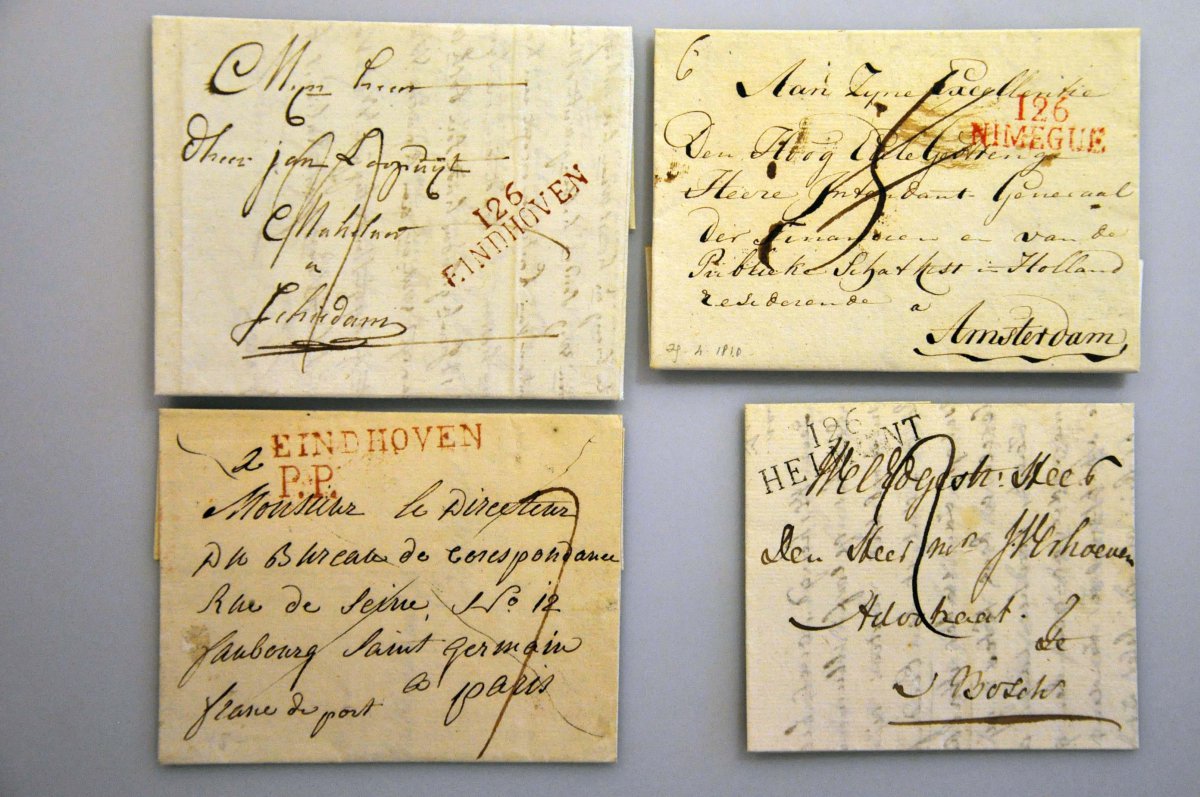 Mijn heer
d'heer
Makelaar
a
Schiedam
126
EINDHOVEN
6
Aan Zyne Excellentie
126
NIMEGUE
Den Hoog Edele
Heere Intendant Generaal
Der Financien en van de
Publicke Schatkist in Holland
resideerende a
Amsterdam
29 - 4 - 1810
2
EINDHOVEN
P.P.
Monsieur le Directeur
Du Bureau de Corespondance
Rue de Seine No 12
faubourg Saint germain
a paris
franc de port
126
HELMONT
Den Heer mr
Advokaat
de
Bosch